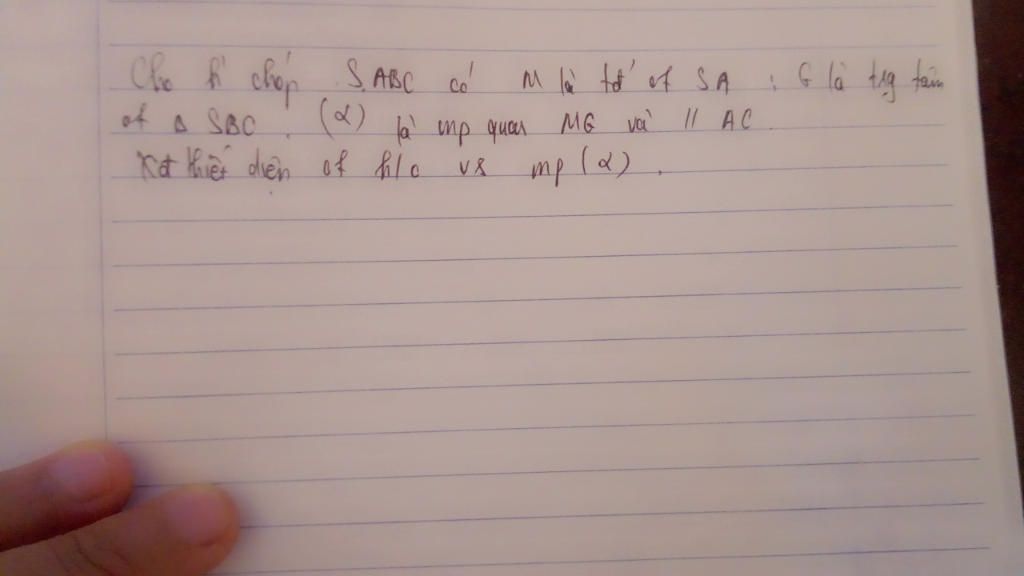 Cho h chóp S.ABC có M là tđ of SA ; G là trg tâm
of Δ SBC. (α) là mp qua MG và // AC.
Xđ thiết diện of h/c vs mp (α).